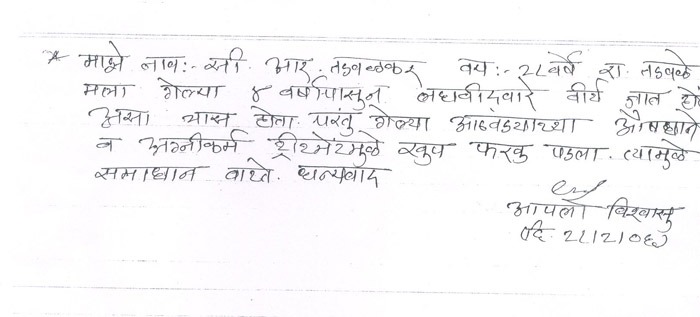 * माझे नाव:- सी. आर. तडवळकर वय:- २८ वर्षे रा. तडवळे
मला गेल्या ४ वर्षापासुन लघवीद्वारे वीर्य जात हो
असा त्रास होता. परंतु गेल्या आठवड्याच्या औषधाने
व अग्नीकर्म ट्रीटमेंटमुळे खुप फरक पडला. त्यामुळे
समाधान वाटते. धन्यवाद
आपला विश्वासु
दि. २८।२।०६